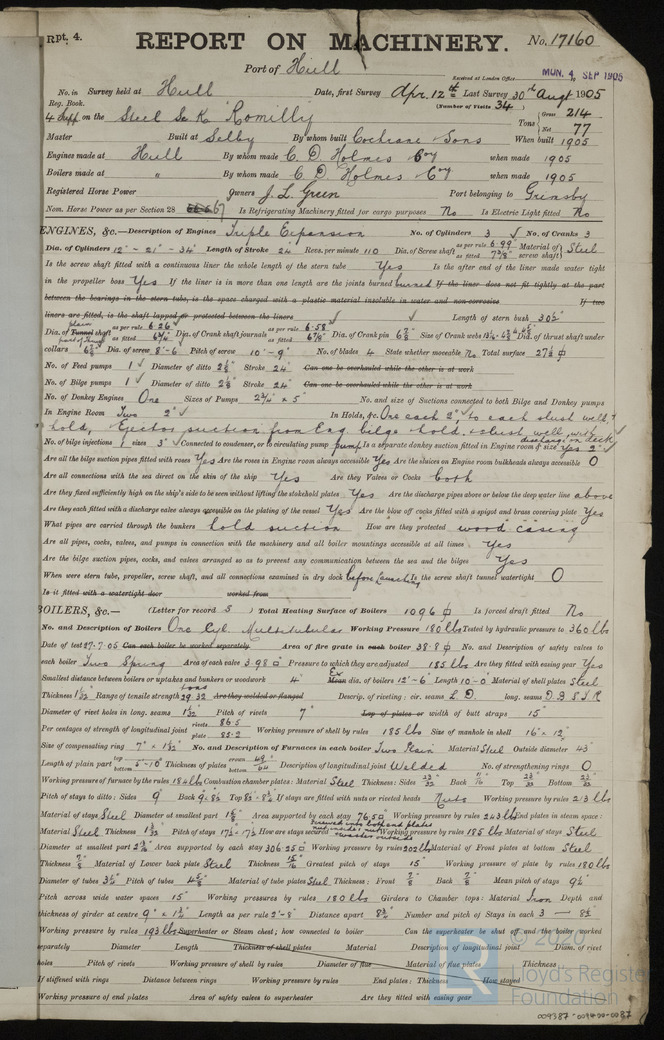 Rpt. 4.
REPORT ON MACHINERY. No. 17160
Port of Hull
Received at London Office MON. 4 SEP 1905
No. in Survey held at Hull Date, first Survey Apr. 12th Last Survey 30th Augt 1905
Reg. Book. (Number of Visits 34)
4 Supp on the Steel Sc K "Romilly" Tons { Gross 214 Net 77
Master Built at Selby By whom built Cochrane & Sons When built 1905
Engines made at Hull By whom made C. D. Holmes & Coy when made 1905
Boilers made at " By whom made C. D. Holmes & Coy when made 1905
Registered Horse Power Owners J. L. Green Port belonging to Grimsby
Nom. Horse Power as per Section 28 67 Is Refrigerating Machinery fitted for cargo purposes No Is Electric Light fitted No
ENGINES, &c.—Description of Engines Triple Expansion No. of Cylinders 3 No. of Cranks 3
Dia. of Cylinders 12" - 21" - 34" Length of Stroke 24" Revs. per minute 110 Dia. of Screw shaft as per rule 6.99" as fitted 7 3/8" Material of screw shaft Steel
Is the screw shaft fitted with a continuous liner the whole length of the stern tube Yes Is the after end of the liner made water tight
in the propeller boss Yes If the liner is in more than one length are the joints burned burned If the liner does not fit tightly at the part
between the bearings in the stern tube, is the space charged with a plastic material insoluble in water and non-corrosive If two
liners are fitted, is the shaft lapped or protected between the liners Length of stern bush 30 1/2"
Dia. of Tunnel shaft as per rule 6.26 as fitted 6 3/4" Dia. of Crank shaft journals as per rule 6.58 as fitted 6 7/8" Dia. of Crank pin 6 7/8" Size of Crank webs Dia. of thrust shaft under
collars 6 7/8" Dia. of screw 8'-6" Pitch of screw 10'-9" No. of blades 4 State whether moveable No Total surface 27 1/2 ф
No. of Feed pumps 1 Diameter of ditto 2 5/8" Stroke 24" Can one be overhauled while the other is at work
No. of Bilge pumps 1 Diameter of ditto 2 5/8" Stroke 24" Can one be overhauled while the other is at work
No. of Donkey Engines One Sizes of Pumps 2 3/4" x 5" No. and size of Suctions connected to both Bilge and Donkey pumps
In Engine Room Two 2" In Holds, &c. One each 2" to each slush well &
hold, Ejector suction from Eng. bilge hold & slush well with discharge on deck
No. of bilge injections 1 sizes 3" Connected to condenser, or to circulating pump pump Is a separate donkey suction fitted in Engine room & size Yes 2"
Are all the bilge suction pipes fitted with roses Yes Are the roses in Engine room always accessible Yes Are the sluices on Engine room bulkheads always accessible 0
Are all connections with the sea direct on the skin of the ship Yes Are they Valves or Cocks both
Are they fixed sufficiently high on the ship's side to be seen without lifting the stokehold plates Yes Are the discharge pipes above or below the deep water line above
Are they each fitted with a discharge valve always accessible on the plating of the vessel Yes Are the blow off cocks fitted with a spigot and brass covering plate Yes
What pipes are carried through the bunkers hold suction How are they protected wood casing
Are all pipes, cocks, valves, and pumps in connection with the machinery and all boiler mountings accessible at all times Yes
Are the bilge suction pipes, cocks, and valves arranged so as to prevent any communication between the sea and the bilges Yes
When were stern tube, propeller, screw shaft, and all connections examined in dry dock before launching Is the screw shaft tunnel watertight 0
Is it fitted with a watertight door worked from
BOILERS, &c.— (Letter for record S) Total Heating Surface of Boilers 1096 ф Is forced draft fitted No
No. and Description of Boilers One Cyl. Multitubular Working Pressure 180 lbs Tested by hydraulic pressure to 360 lbs
Date of test 27.7.05 Can each boiler be worked separately Area of fire grate in each boiler 38.8 ф No. and Description of safety valves to
each boiler Two Spring Area of each valve 3.98 Pressure to which they are adjusted 185 lbs Are they fitted with easing gear Yes
Smallest distance between boilers or uptakes and bunkers or woodwork 4" Mean dia. of boilers 12'-6" Length 10'-0" Material of shell plates Steel
Thickness 1 1/32" Range of tensile strength 29.32 tons Are they welded or flanged Descrip. of riveting: cir. seams L. D. long. seams D B S T R
Diameter of rivet holes in long. seams 1 1/32" Pitch of rivets 7" Lap of plates or width of butt straps 15"
Per centages of strength of longitudinal joint rivets 86.5 plate 85.2 Working pressure of shell by rules 185 lbs Size of manhole in shell 16" x 12"
Size of compensating ring 7" x 1 1/32" No. and Description of Furnaces in each boiler Two Plain Material Steel Outside diameter 43"
Length of plain part top bottom 5'-10" Thickness of plates crown bottom Description of longitudinal joint Welded No. of strengthening rings 0
Working pressure of furnace by the rules 184 lbs Combustion chamber plates: Material Steel Thickness: Sides 23/32" Back 11/16" Top 23/32" Bottom 23/32"
Pitch of stays to ditto: Sides 9" Back Top If stays are fitted with nuts or riveted heads Nuts Working pressure by rules 213 lbs
Material of stays Steel Diameter at smallest part Area supported by each stay 76.5 Working pressure by rules 243 lbs End plates in steam space:
Material Steel Thickness 1 1/32" Pitch of stays How are stays secured Working pressure by rules 185 lbs Material of stays Steel
Diameter at smallest part Area supported by each stay 306.25 Working pressure by rules 202 lbs Material of Front plates at bottom Steel
Thickness 7/8" Material of Lower back plate Steel Thickness 15/16" Greatest pitch of stays 15" Working pressure of plate by rules 180 lbs
Diameter of tubes 3 1/4" Pitch of tubes 4 5/8" Material of tube plates Steel Thickness: Front 7/8" Back 7/8" Mean pitch of stays 9 1/2"
Pitch across wide water spaces 15" Working pressures by rules 180 lbs Girders to Chamber tops: Material Iron Depth and
thickness of girder at centre 9" x 1 3/4" Length as per rule 2'-8" Distance apart 8 3/4" Number and pitch of Stays in each 3 — 8 1/2"
Working pressure by rules 193 lbs Superheater or Steam chest; how connected to boiler Can the superheater be shut off and the boiler worked
separately Diameter Length Thickness of shell plates Material Description of longitudinal joint Diam. of rivet
holes Pitch of rivets Working pressure of shell by rules Diameter of flue Material of flue plates Thickness
If stiffened with rings Distance between rings Working pressure by rules End plates: Thickness How stayed
Working pressure of end plates Area of safety valves to superheater Are they fitted with easing gear
© 2020
Lloyd's Register
Foundation
009387-009400-0087